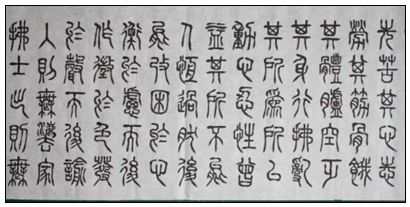 先苦其心志
勞其筋骨餓
其體膚空乏
其身行拂亂
其所為所以
動心忍性曾
益其所不能
人恆過然後
能改困於心
衡於慮而後
作徵於色發
於聲而後喻
入則無法家
拂士出則無